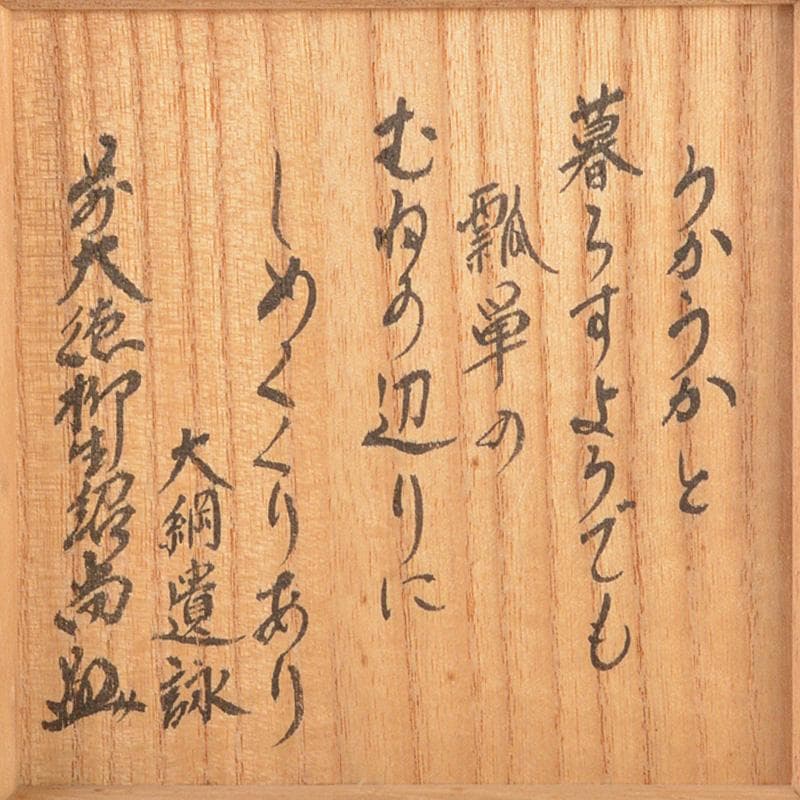 うかうかと
暮らすようでも
瓢箪の
むねの辺りに
しめくくりあり
大綱遺詠
前大徳柳生紹尚